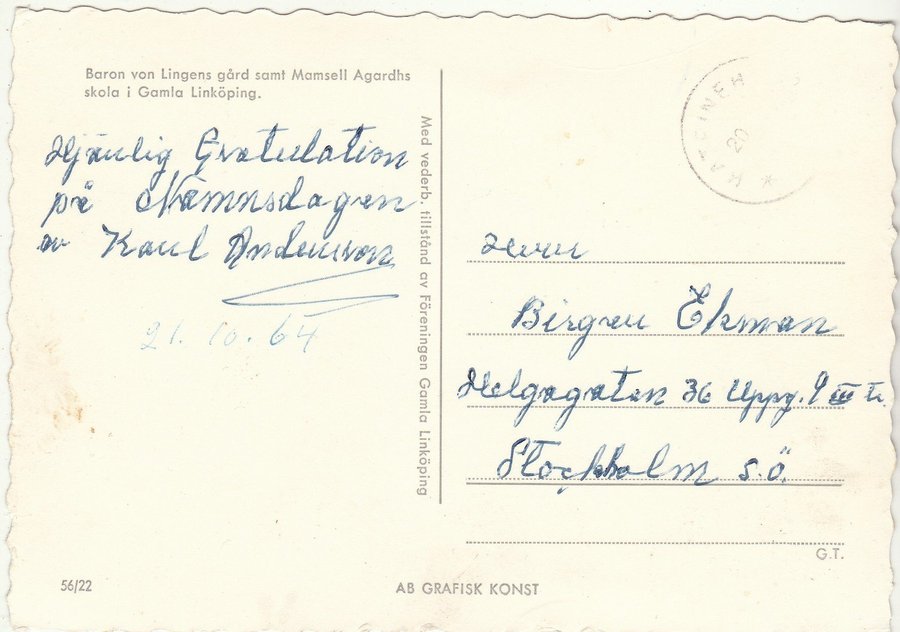 Baron von Lingens gård samt Mamsell Agardhs
skola i Gamla Linköping.
Hjärtlig Gratulation
på Namnsdagen
av Karl Andersson
21.10.64
Med vederb. tillstånd av Föreningen Gamla Linköping
KATRINEH
20
Herr
Birger Ekman
Helgagatan 36 Uppg. 9 III tr.
Stockholm s.ö.
G.T.
56/22
AB GRAFISK KONST